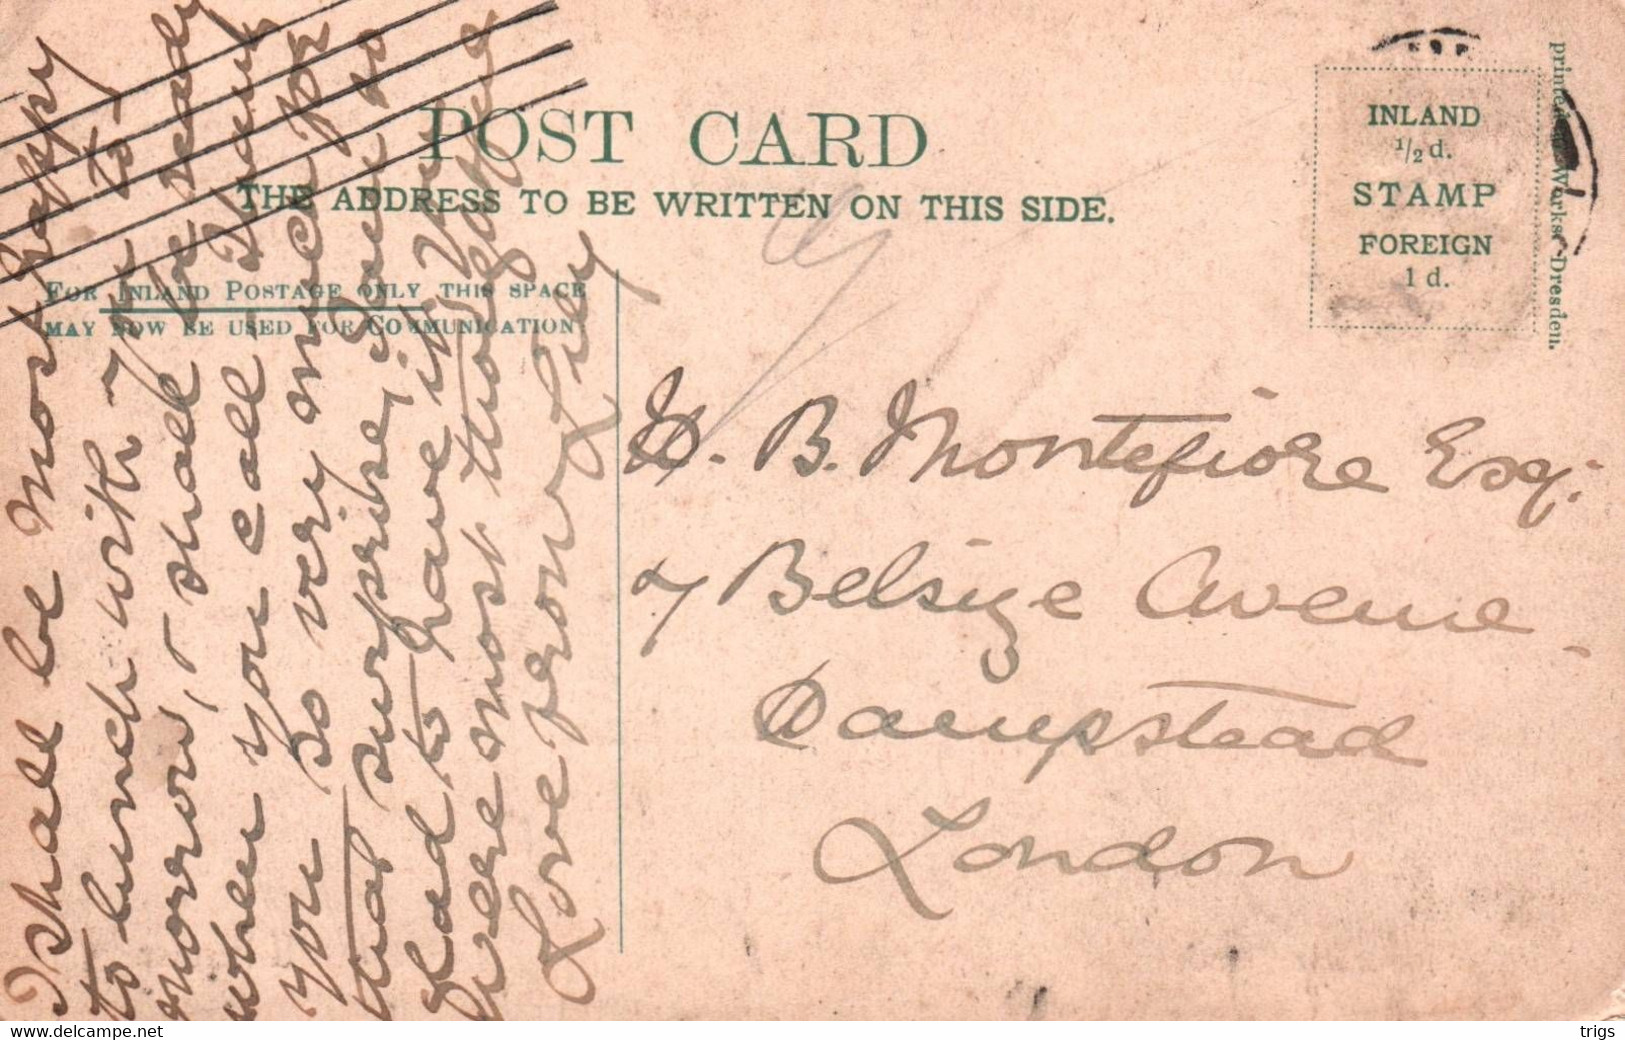 POST CARD
THE ADDRESS TO BE WRITTEN ON THIS SIDE.
FOR INLAND POSTAGE ONLY THIS SPACE
MAY NOW BE USED FOR COMMUNICATION
INLAND
1/2 d.
STAMP
FOREIGN
1 d.
printed Works Dresden.
I shall be most happy
to lunch with you to
morrow, & shall be ready
when you call. Thank
you so very much for
that surprise, I am so
glad to have it. You
were most thoughtful
Love from Lily
B. Montefiore Esq.
7 Belsize Avenue
Hampstead
London
delcampe.net
trigs